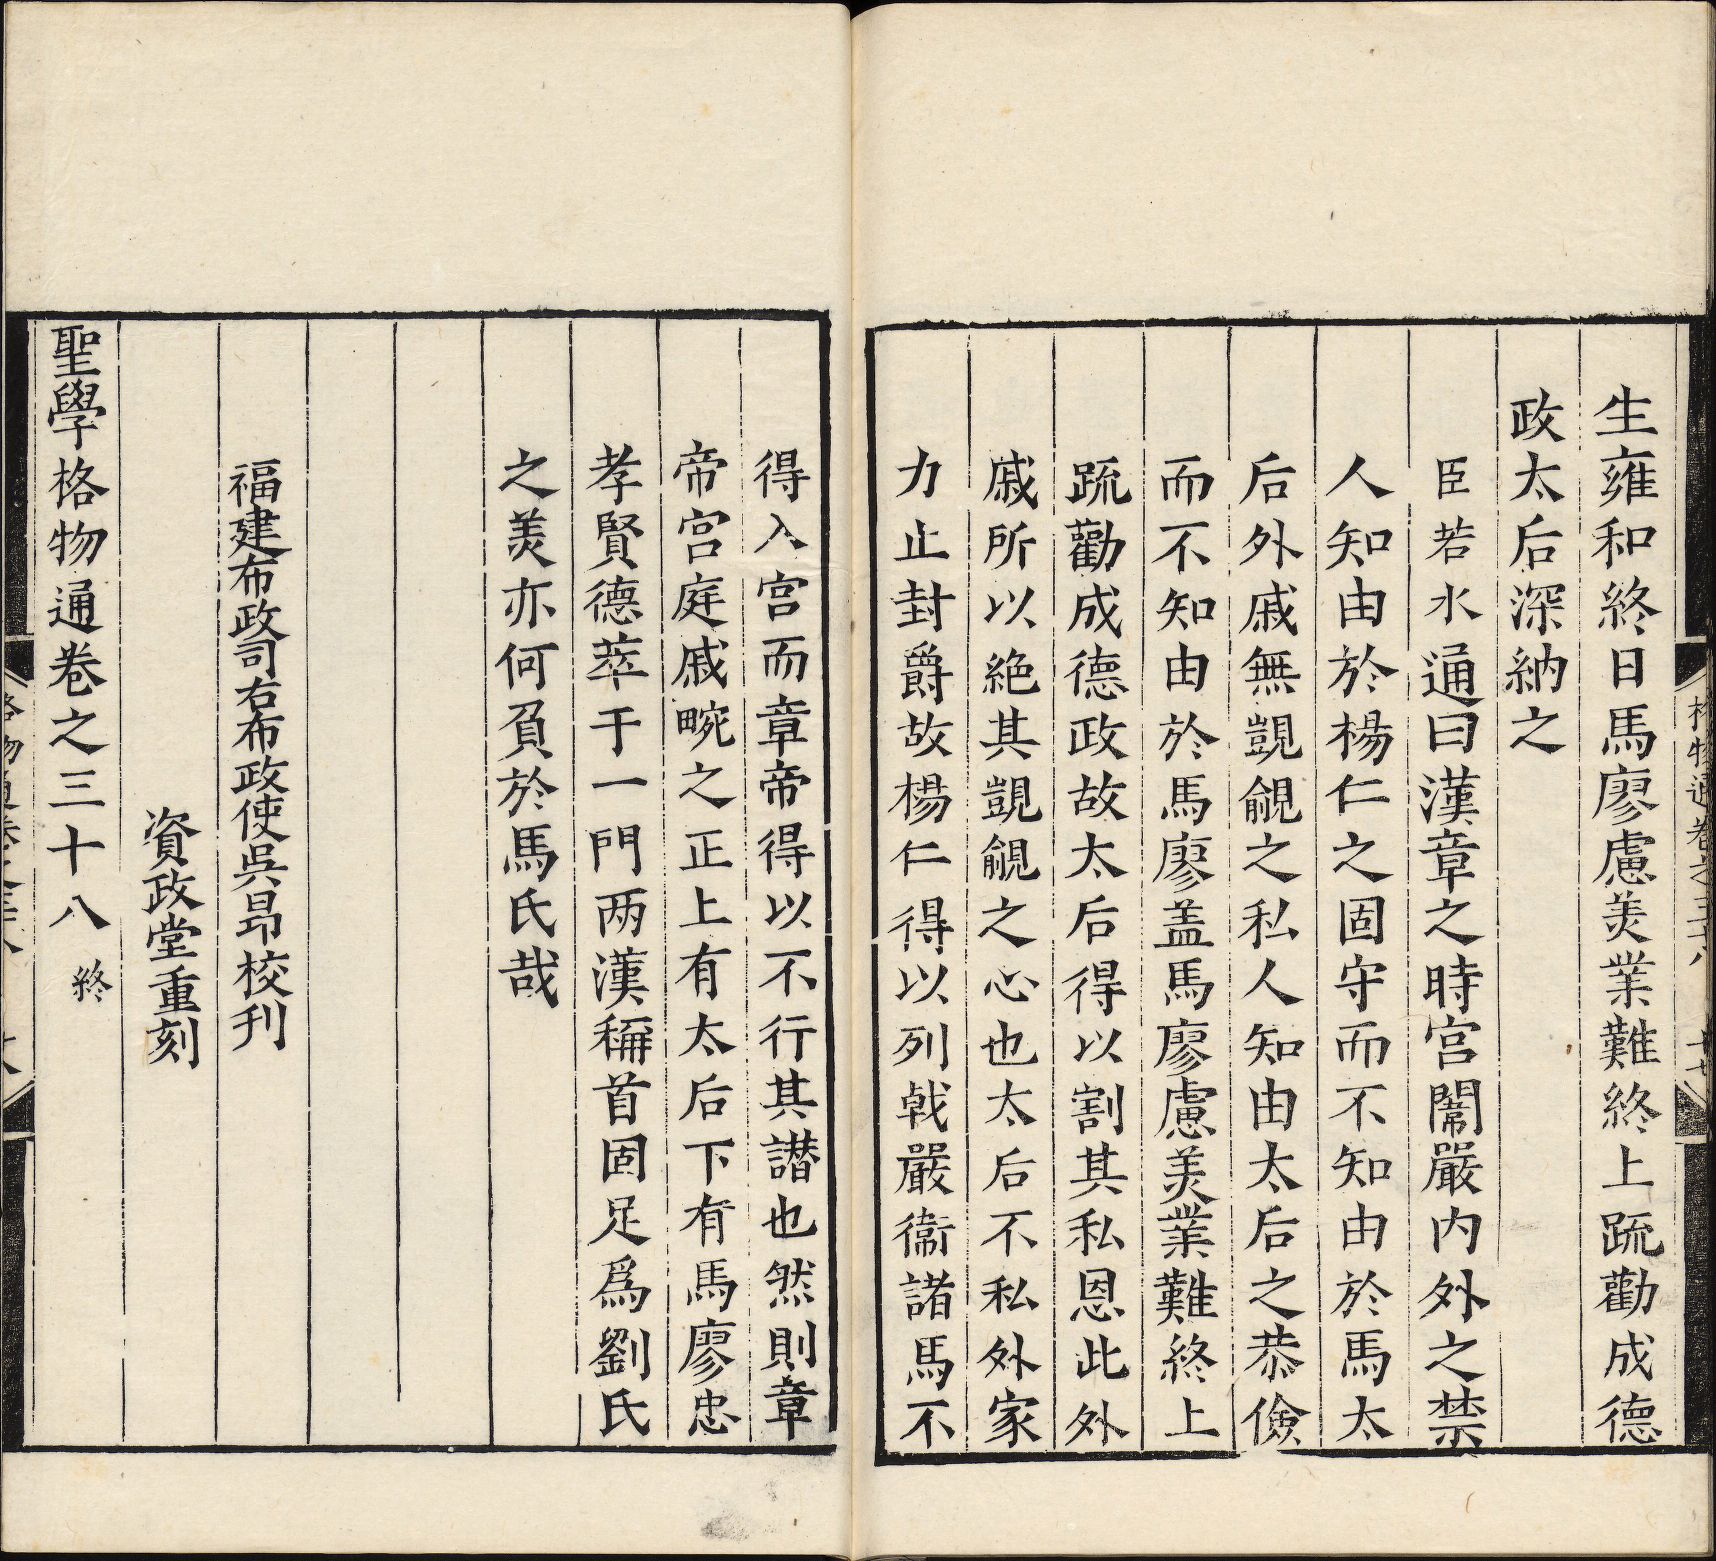 生雍和終日馬廖慮美業難終上疏勸成德
政太后深納之
臣若水通曰漢章之時宮闈嚴内外之禁
人知由於楊仁之固守而不知由於馬太
后外戚無覬覦之私人知由太后之恭儉
而不知由於馬廖盖馬廖慮美業難終上
疏勸成德政故太后得以割其私恩此外
戚所以絶其覬覦之心也太后不私外家
力止封爵故楊仁得以列戟嚴衞諸馬不
得入宮而章帝得以不行其譖也然則章
帝宮庭戚畹之正上有太后下有馬廖忠
孝賢德萃于一門两漢稱首固足爲劉氏
之美亦何負於馬氏哉
福建布政司右布政使吳昂校刊
資政堂重刻
聖學格物通卷之三十八 終
格物通卷之三十八